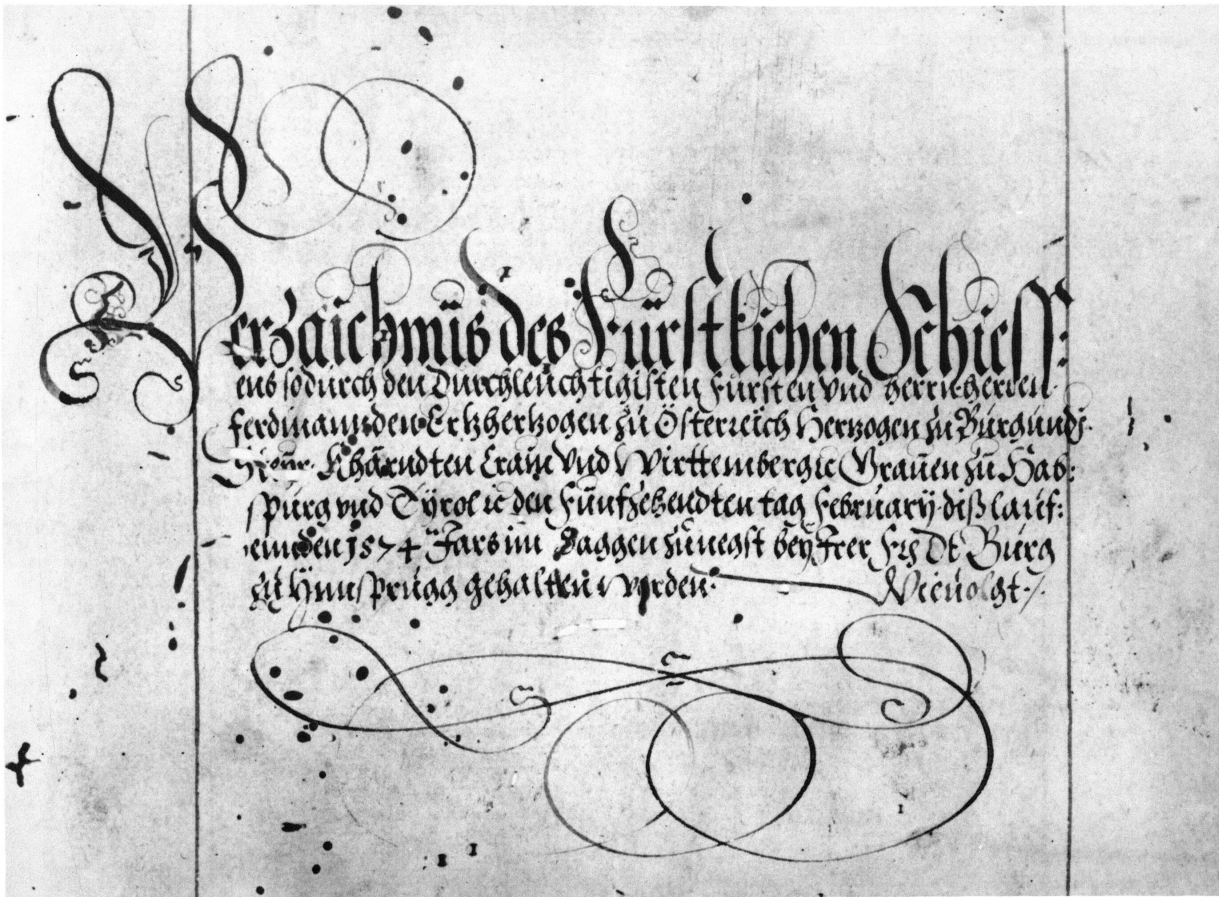 Verzaichnüs des Fürstlichen Schiess:
ens so durch den Durchleüchtigisten Fürsten vnd herrn herren
ferdinannden Ertzhertzogen zü Österreich Hertzogen zu Bürgündj.
Steÿr. Khärndten Crain vnd Wirttemberg ic Grauen zü Hab:
spurg vnd Tÿrol ic den Fünfzehendten tag February diß lauf:
eunden 1574 Jars im zünegst beÿ Irer Burg
zü Ÿnnsprugg gehalten worden. Wieuolgt ./.